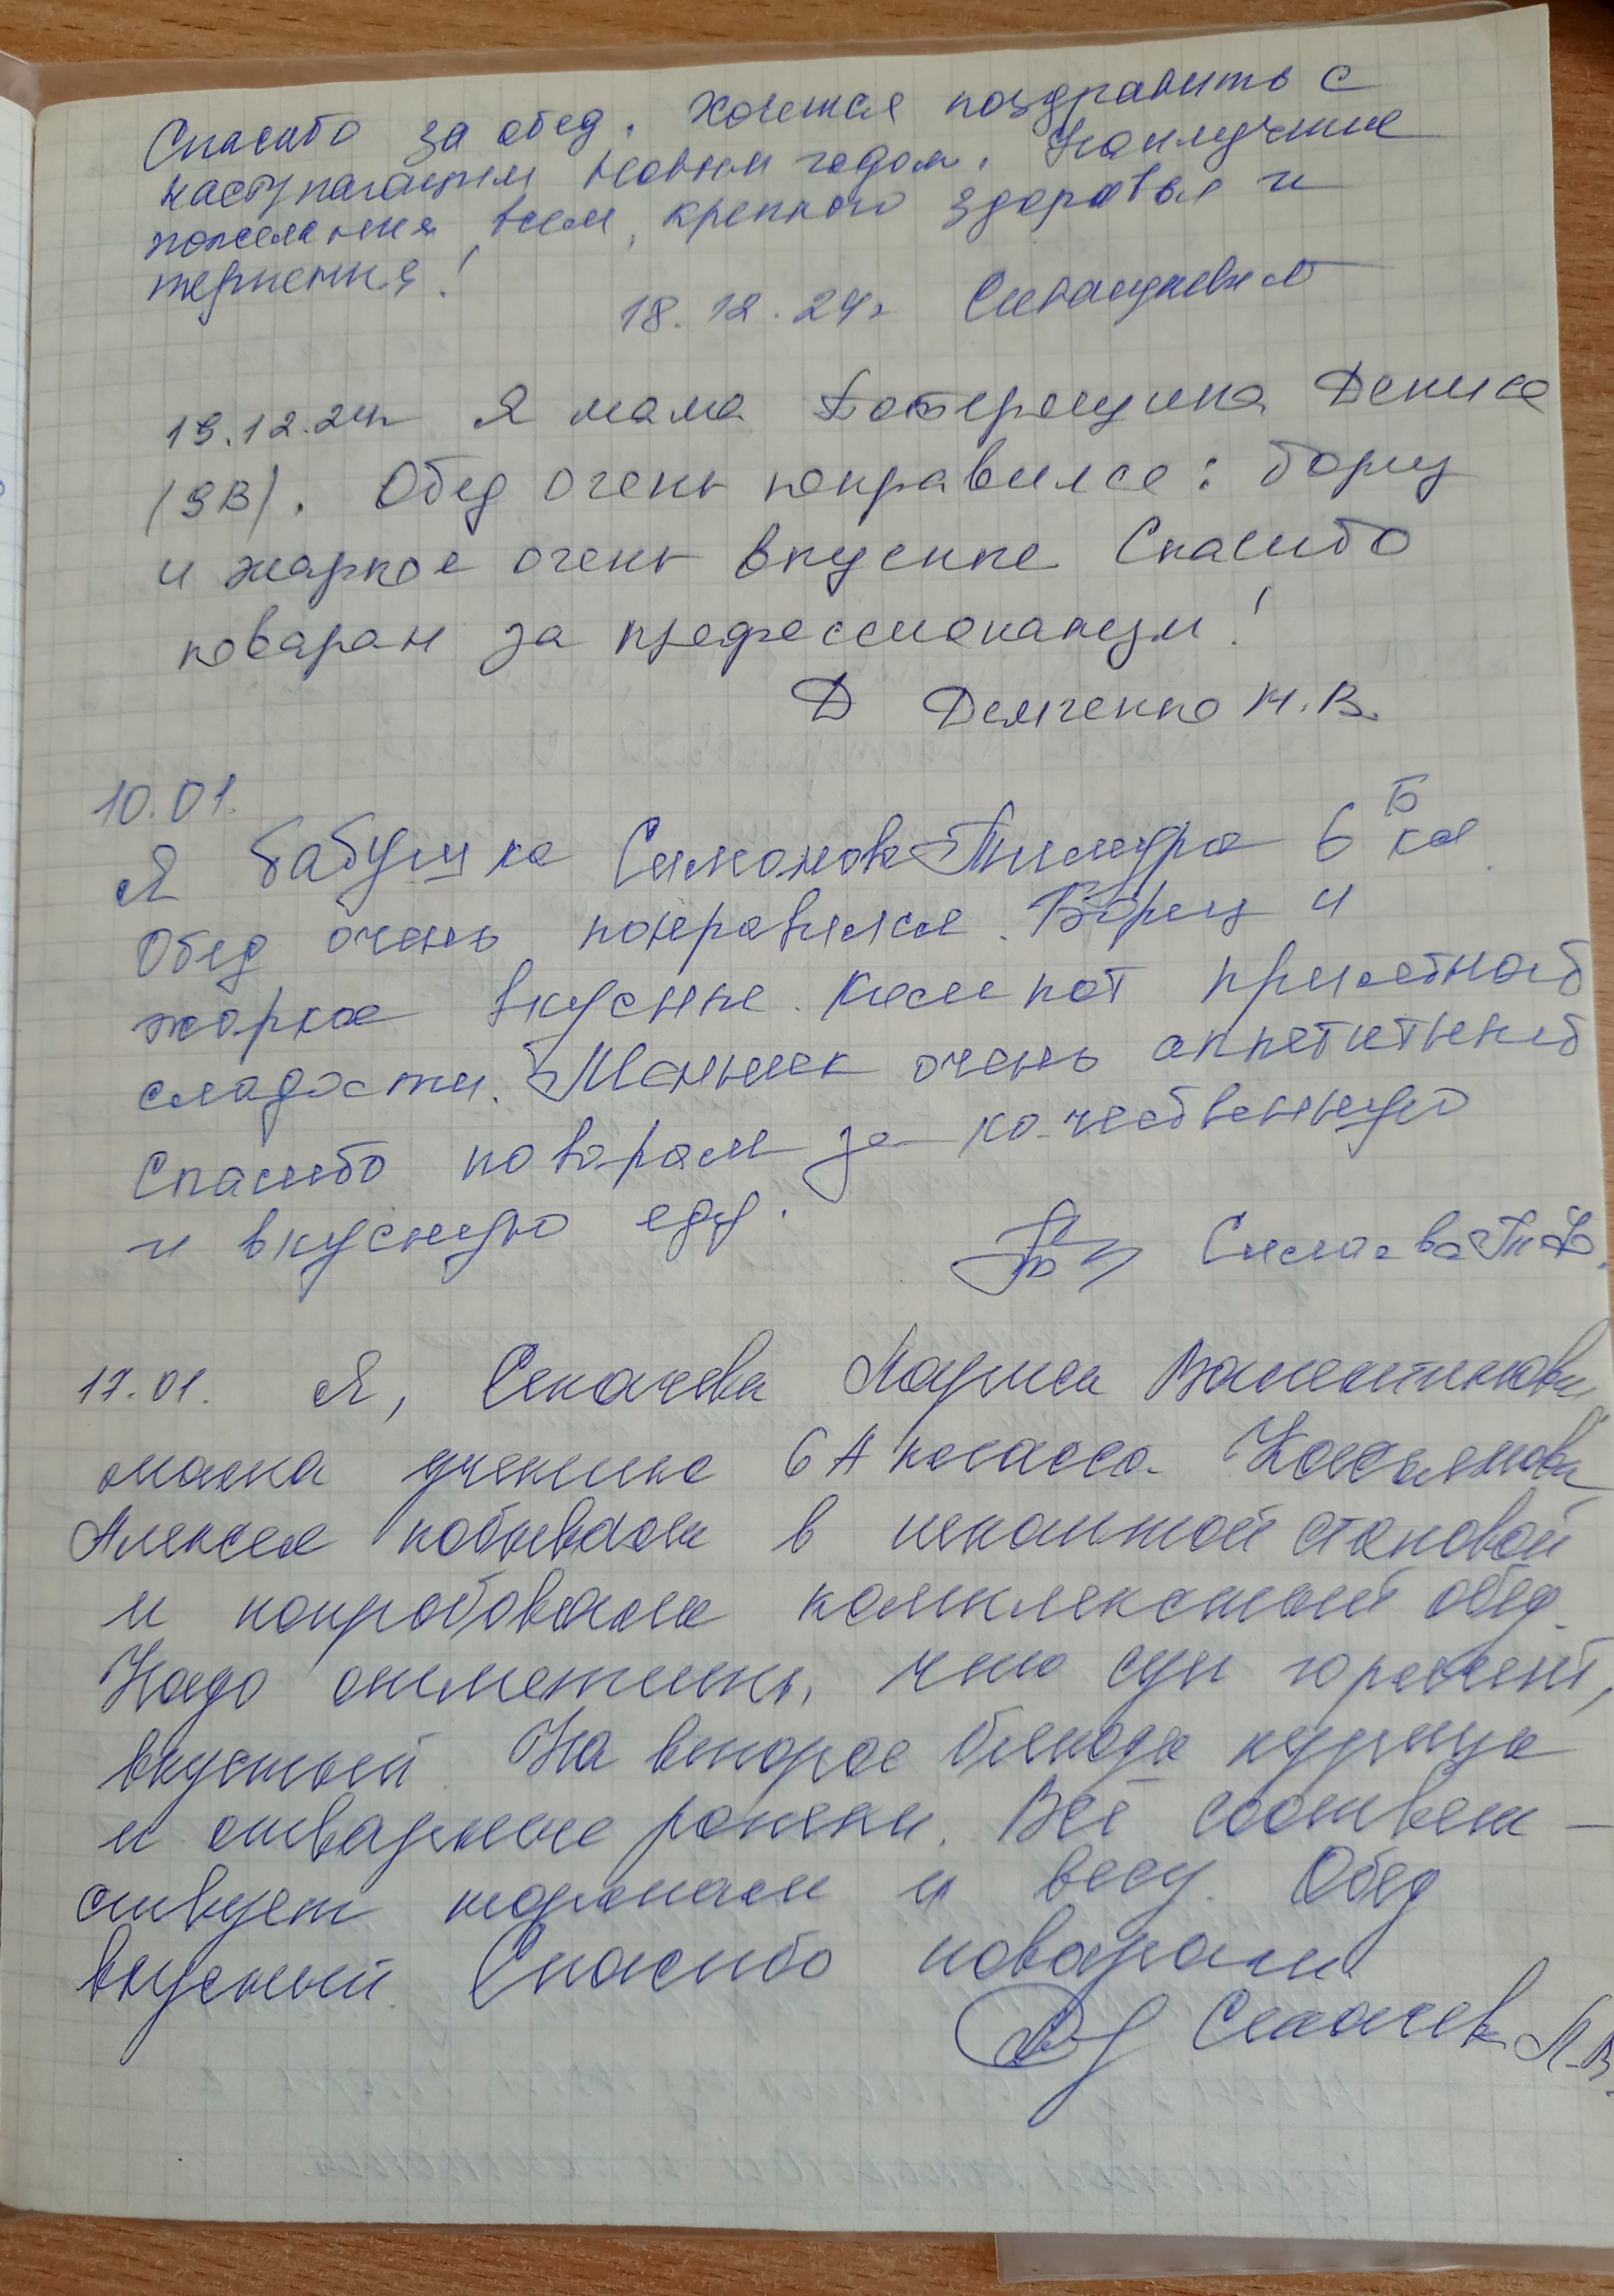 Спасибо за обед. Хочется поздравить с
наступающим Новым годом. Наилучшие
пожелания всем, крепкого здоровья и
терпения!
18.12.24г
19.12.24г Я мама Дениса
(9В). Обед очень понравился: борщ
и жаркое очень вкусные Спасибо
поварам за профессионализм!
Д Демченко Н.В.
10.01.
Я бабушка Симонова Тимура 6 Б кл.
Обед очень понравился. Борщ и
жаркое вкусные. Компот приятной
сладости. Манник очень аппетитный
Спасибо поварам за качественную
и вкусную еду.
17.01. Я, Секачева Лариса Валентиновна
мама ученика 6 А класса
Алексея побывала в школьной столовой
и попробовала комплексный обед.
Надо отметить, что суп горячий,
вкусный. На второе блюдо курица
и отварные рожки. Всё соответ-
ствует нормам и весу. Обед
вкусный. Спасибо поварам.
Секачева Л.В.